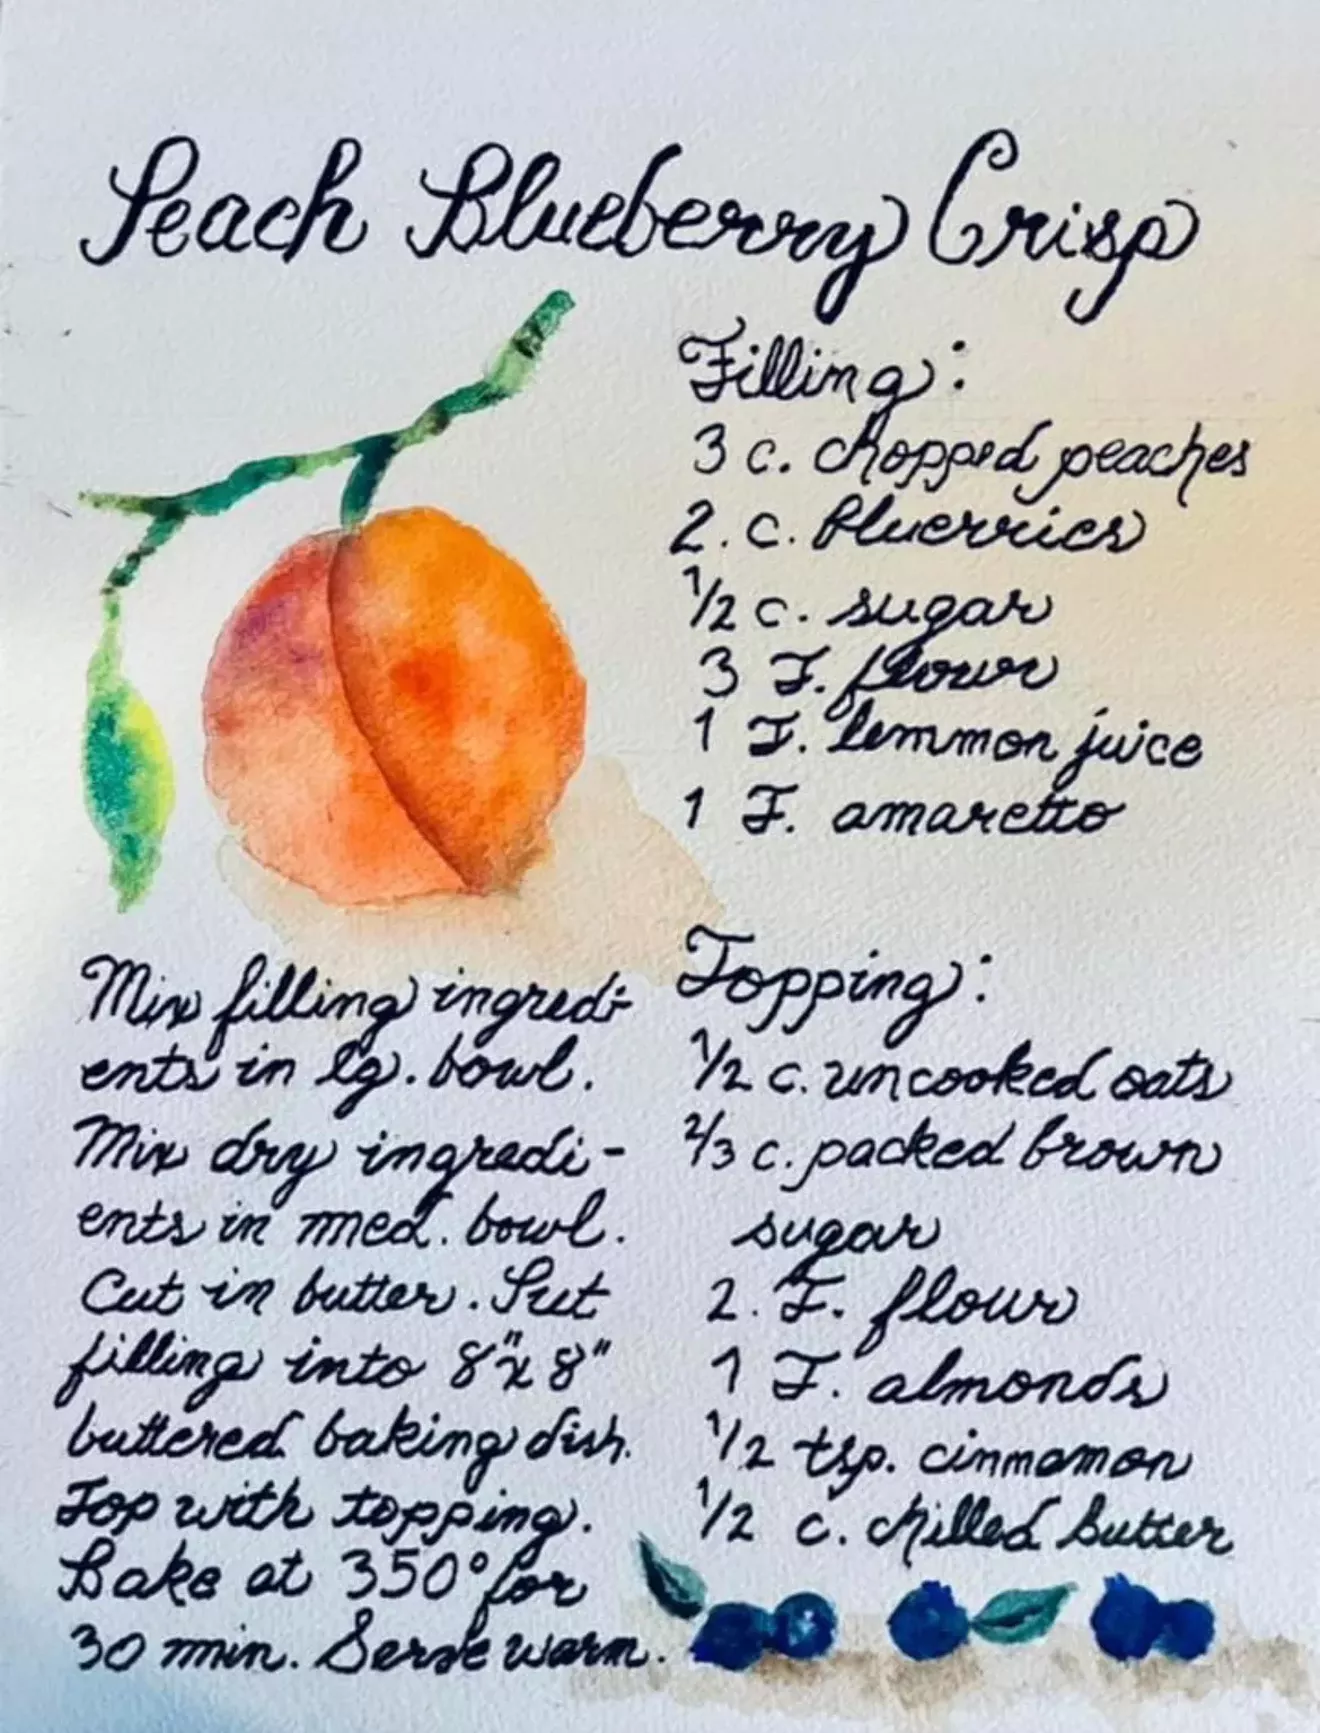 Peach Blueberry Crisp
Filling:
3 c. chopped peaches
2. c. bluerries
1/2 c. sugar
3 T. flour
1 T. lemmon juice
1 T. amaretto
Topping:
1/2 c. uncooked oats
2/3 c. packed brown
sugar
2. T. flour
1 T. almonds
1/2 tsp. cinnamon
1/2 c. chilled butter
Mix filling ingredi-
ents in lg. bowl.
Mix dry ingredi-
ents in med. bowl.
Cut in butter. Put
filling into 8"x 8"
buttered baking dish.
Top with topping.
Bake at 350° for
30 min. Serve warm.